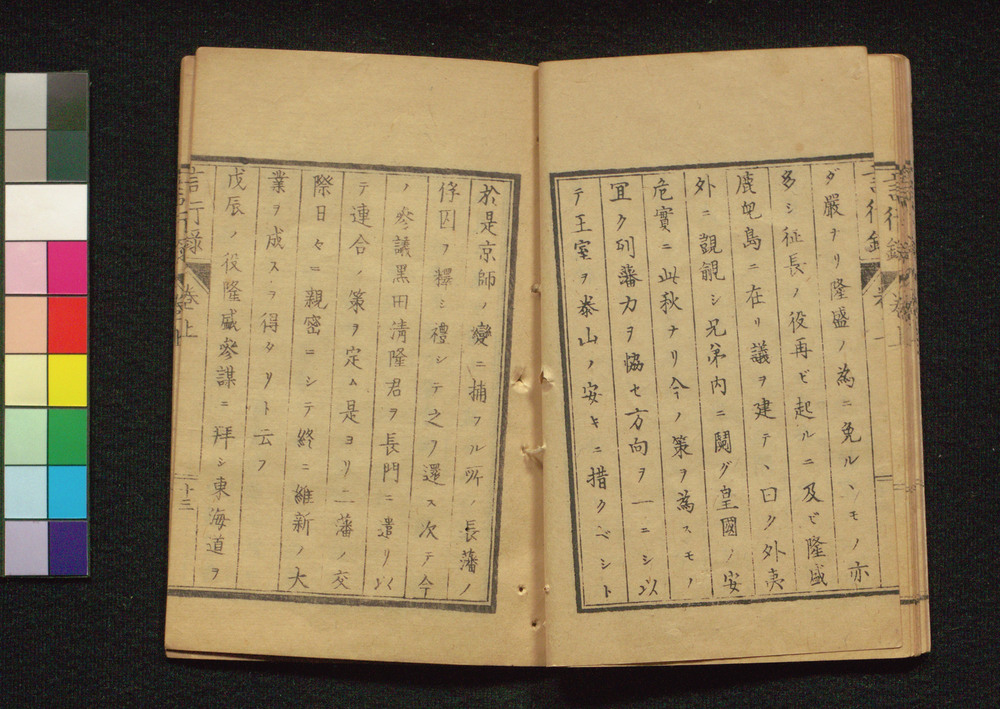 ダ嚴ナリ隆盛ノ為ニ免ルヽモノ亦
多シ征長ノ役再ビ起ルニ及ビ隆盛
鹿兒島ニ在リ議ヲ建テヽ曰ク外夷
外ニ覬覦シ兄弟内ニ鬩グ皇國ノ安
危實ニ此秋ナリ今ノ策ヲ為スモノ
宜ク列藩力ヲ恊セ方向ヲ一ニシ以
テ王室ヲ泰山ノ安キニ措クベシト
於是京師ノ變ニ捕フル所ノ長藩ノ
俘囚ヲ釋シ禮シテ之ヲ還ス次テ今
ノ參議黒田清隆君ヲ長門ニ遣リ以
テ連合ノ策ヲ定ム是ヨリ二藩ノ交
際日々ニ親密ニシテ終ニ維新ノ大
業ヲ成スヲ得タリト云フ
戊辰ノ役隆盛參謀ニ拜シ東海道ヲ
言行録 卷上
十三